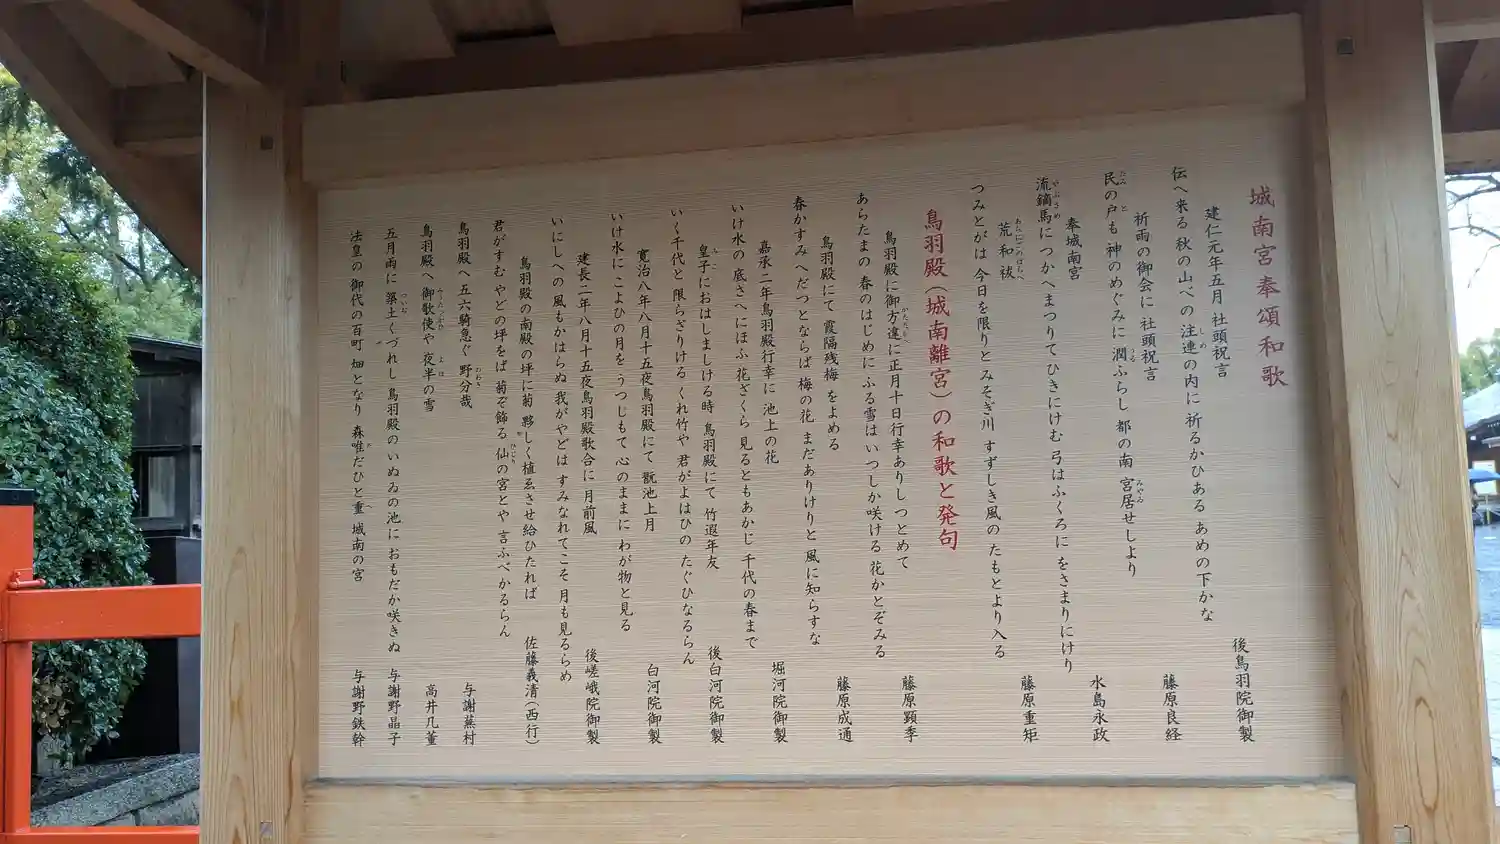 城南宮奉頌和歌
建仁元年五月 社頭祝言
後鳥羽院御製
伝へ来る 秋の山べの 注連の内に 祈るかひある あめの下かな
祈雨の御会に 社頭祝言
藤原良経
民の戸も 神のめぐみに 潤ふらし 都の南 宮居せしより
奉城南宮
水島永政
流鏑馬に つかへまつりて ひきにけむ 弓はふくろに をさまりにけり
荒和祓
藤原重矩
つみとがは 今日を限りと みそぎ川 すずしき風の たもとより入る
鳥羽殿(城南離宮)の和歌と発句
鳥羽殿に御方違に正月十日行幸ありし つとめて
藤原顕季
あらたまの 春のはじめに ふる雪は いつしか咲ける 花かとぞみる
鳥羽殿にて 霞隔残梅 をよめる
藤原成通
春かすみ へだつとならば 梅の花 まだありけりと 風に知らすな
嘉承二年鳥羽殿行幸に 池上の花
堀河院御製
いけ水の 底さへにほふ 花ざくら 見るともあかじ 千代の春まで
皇子におはしましける時 鳥羽殿にて 竹遐年友
後白河院御製
いく千代と 限らざりける くれ竹や 君がよはひの たぐひなるらん
寛治八年八月十五夜鳥羽殿にて 翫池上月
白河院御製
いけ水に こよひの月を うつしもて 心のままに わが物と見る
建長二年八月十五夜鳥羽殿歌合に 月前風
後嵯峨院御製
いにしへの 風もかはらぬ 我がやどは すみなれてこそ 月も見るらめ
鳥羽殿の南殿の坪に菊 夥しく植ゑさせ給ひたれば
佐藤義清(西行)
君がすむ やどの坪をば 菊ぞ飾る 仙の宮とや 言ふべかるらん
鳥羽殿へ 五六騎急ぐ 野分哉
与謝蕪村
鳥羽殿へ 御歌使や 夜半の雪
高井几董
五月雨に 築土くづれし 鳥羽殿の いぬゐの池に おもだか咲きぬ
与謝野晶子
法皇の 御代の百町 畑となり 森唯だひと重 城南の宮
与謝野鉄幹